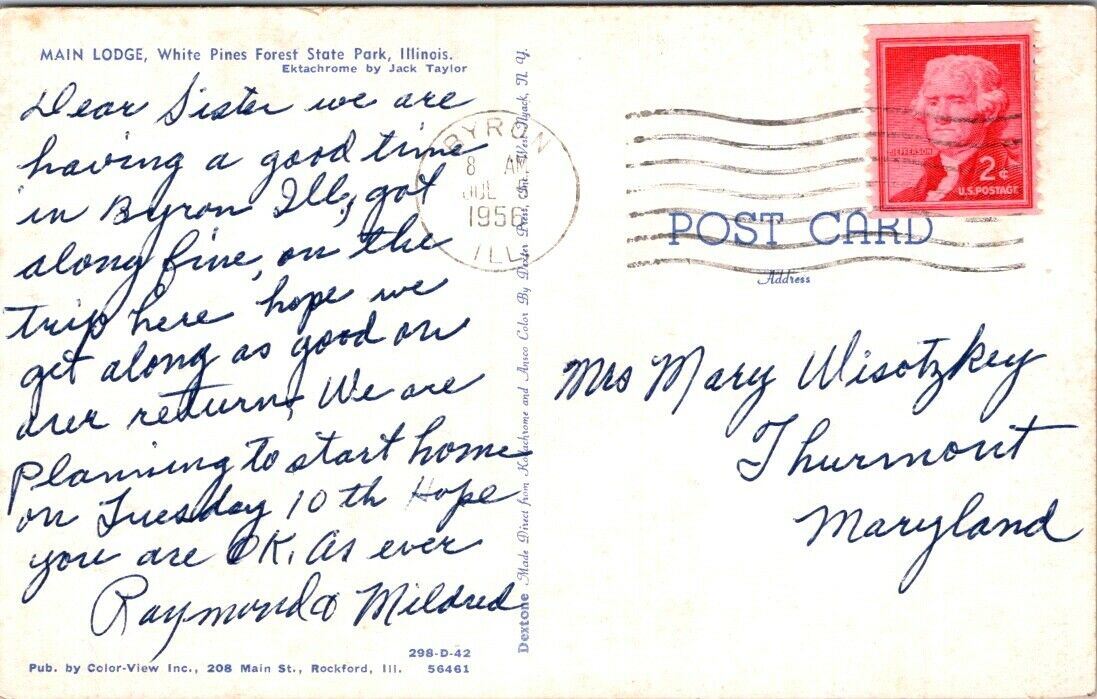 MAIN LODGE, White Pines Forest State Park, Illinois.
Ektachrome by Jack Taylor
Dear Sister we are
having a good time
in Byron Ill, got
along fine, on the
trip here hope we
get along as good on
our return, We are
Planning to start home
on Tuesday 10th Hope
you are OK. As ever
Raymond & Mildred
298-D-42
Pub. by Color-View Inc., 208 Main St., Rockford, Ill. 56461
Dextone Made Direct from Kodachrome and Ansco Color By Dexter Press, Inc., West Nyack, N. Y.
BYRON
8 AM
JUL
1956
ILL
JEFFERSON
2¢
U.S. POSTAGE
POST CARD
Address
Mrs Mary Wisotzkey
Thurmont
Maryland